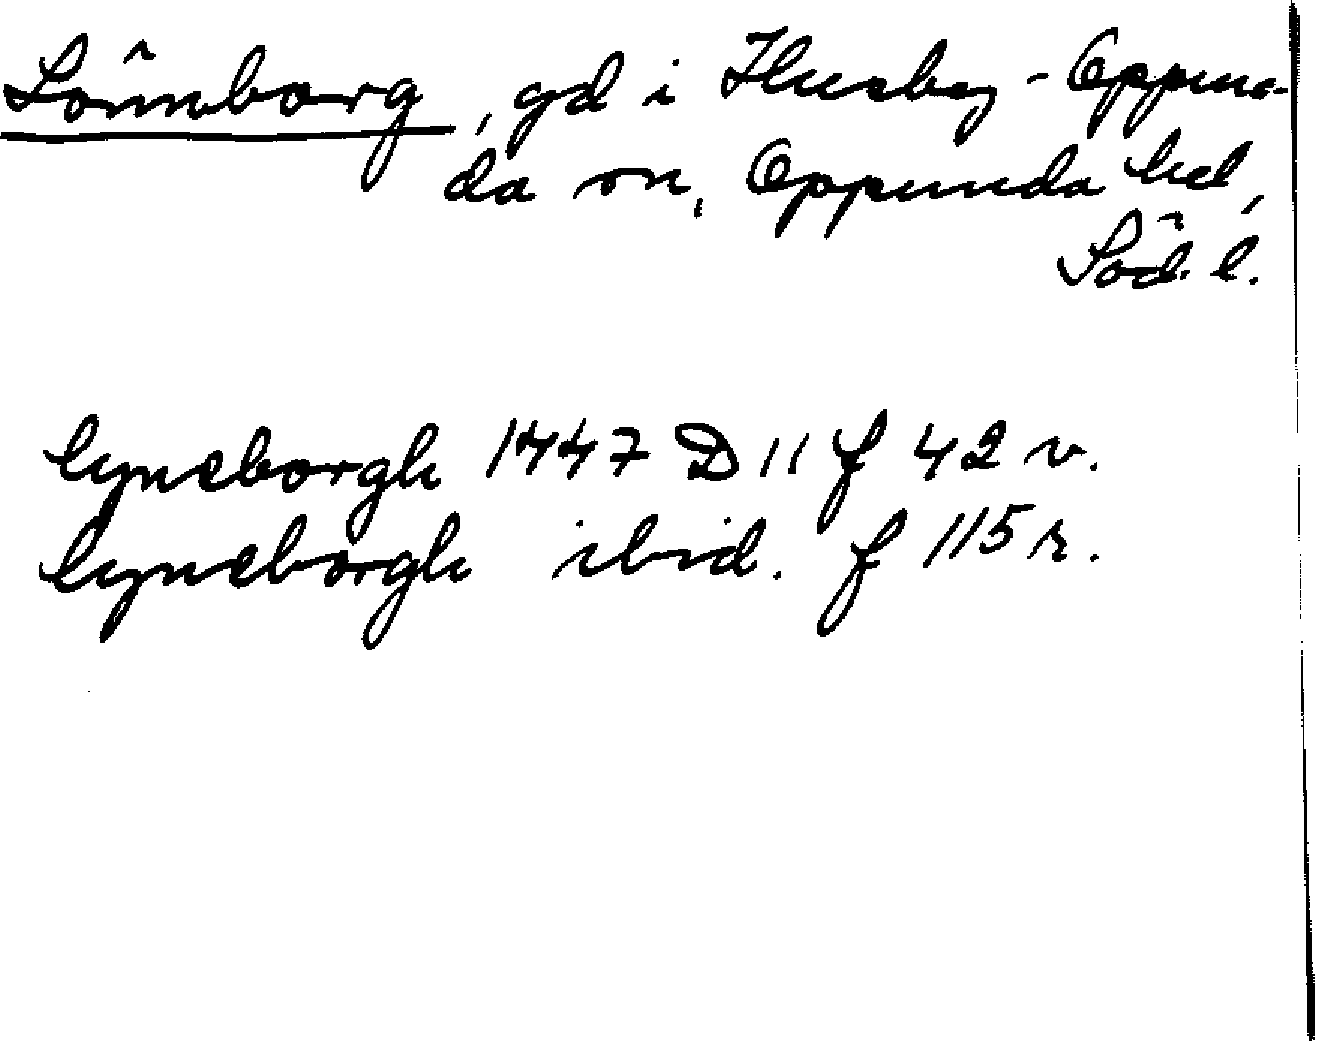 Lönnborg, gd i Husby-Oppun-
da sn, Oppunda hd,
Söd. l.
lyneborgh 1447 D 11 f 42 v.
lyneborgh ibid. f 115 r.